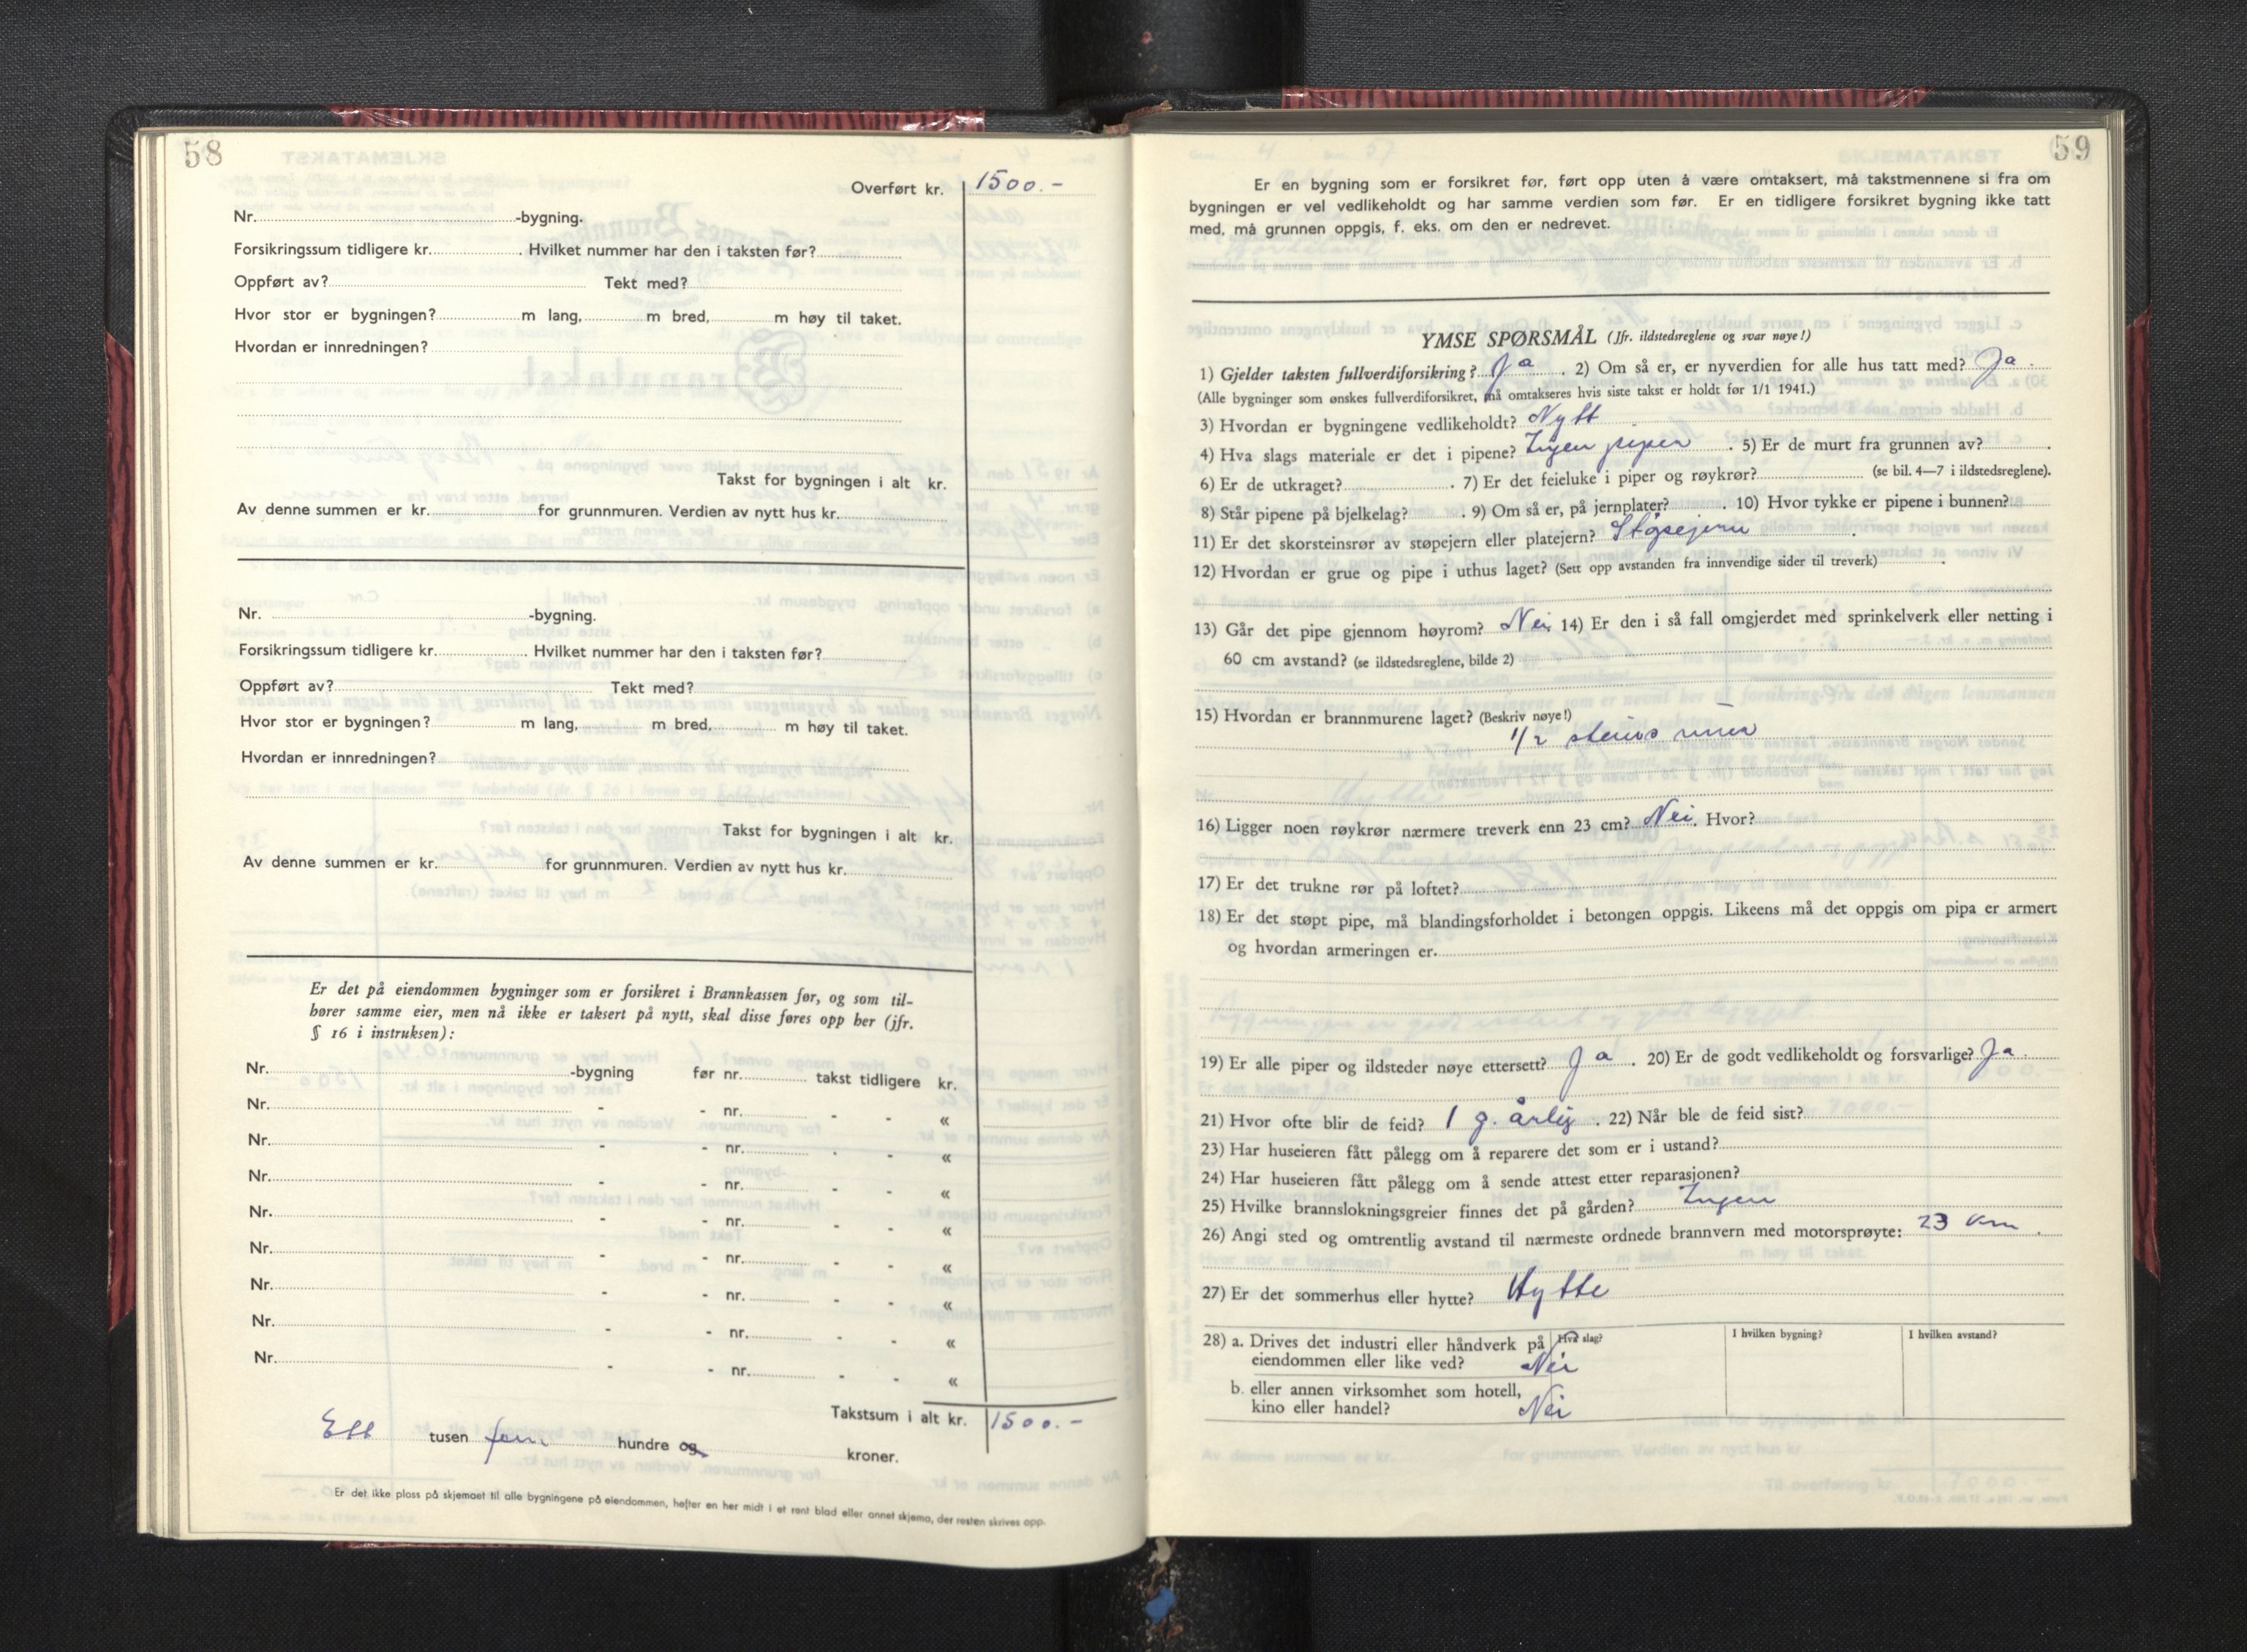 58
Overført kr. 1500.-
Nr. -bygning.
Forsikringssum tidligere kr. . Hvilket nummer har den i taksten før?
Oppført av? Tekt med?
Hvor stor er bygningen? m lang, m bred, m høy til taket.
Hvordan er innredningen?
Takst for bygningen i alt kr.
Av denne summen er kr. for grunnmuren. Verdien av nytt hus kr.
Nr. -bygning.
Forsikringssum tidligere kr. . Hvilket nummer har den i taksten før?
Oppført av? Tekt med?
Hvor stor er bygningen? m lang, m bred, m høy til taket.
Hvordan er innredningen?
Takst for bygningen i alt kr.
Av denne summen er kr. for grunnmuren. Verdien av nytt hus kr.
Er det på eiendommen bygninger som er forsikret i Brannkassen før, og som til-
hører samme eier, men nå ikke er taksert på nytt, skal disse føres opp her (jfr.
§ 16 i instruksen):
Nr. -bygning før nr. takst tidligere kr.
Nr. - - nr. - - «
Nr. - - nr. - - «
Nr. - - nr. - - «
Nr. - - nr. - - «
Nr. - - nr. - - «
Nr. - - nr. - - «
Nr. - - nr. - - «
Nr. - - nr. - - «
Takstsum i alt kr. 1500.-
Ett tusen fem hundre og kroner.
Er det ikke plass på skjemaet til alle bygningene på eiendommen, hefter en her midt i et rent blad eller annet skjema, der resten skrives opp.
59
Er en bygning som er forsikret før, ført opp uten å være omtaksert, må takstmennene si fra om
bygningen er vel vedlikeholdt og har samme verdien som før. Er en tidligere forsikret bygning ikke tatt
med, må grunnen oppgis, f. eks. om den er nedrevet.
YMSE SPØRSMÅL (Jfr. ildstedsreglene og svar nøye!)
1) Gjelder taksten fullverdiforsikring? Ja . 2) Om så er, er nyverdien for alle hus tatt med? Ja.
(Alle bygninger som ønskes fullverdiforsikret, må omtakseres hvis siste takst er holdt før 1/1 1941.)
3) Hvordan er bygningene vedlikeholdt? Nytt
4) Hva slags materiale er det i pipene? Ingen piper . 5) Er de murt fra grunnen av? .
6) Er de utkraget? . 7) Er det feieluke i piper og røykrør? (se bil. 4—7 i ildstedsreglene).
8) Står pipene på bjelkelag? . 9) Om så er, på jernplater? . 10) Hvor tykke er pipene i bunnen?
11) Er det skorsteinsrør av støpejern eller platejern? Støpejern .
12) Hvordan er grue og pipe i uthus laget? (Sett opp avstanden fra innvendige sider til treverk) .
13) Går det pipe gjennom høyrom? Nei. 14) Er den i så fall omgjerdet med sprinkelverk eller netting i
60 cm avstand? (se ildstedsreglene, bilde 2)
15) Hvordan er brannmurene laget? (Beskriv nøye!)
1/2 steins mur
16) Ligger noen røykrør nærmere treverk enn 23 cm? Nei. Hvor?
17) Er det trukne rør på loftet?
18) Er det støpt pipe, må blandingsforholdet i betongen oppgis. Likeens må det oppgis om pipa er armert
og hvordan armeringen er.
19) Er alle piper og ildsteder nøye ettersett? Ja . 20) Er de godt vedlikeholdt og forsvarlige? Ja.
21) Hvor ofte blir de feid? 1 g. årlig . 22) Når ble de feid sist?
23) Har huseieren fått pålegg om å reparere det som er i ustand?
24) Har huseieren fått pålegg om å sende attest etter reparasjonen?
25) Hvilke brannslokningsgreier finnes det på gården? Ingen
26) Angi sted og omtrentlig avstand til nærmeste ordnede brannvern med motorsprøyte: 23 km .
27) Er det sommerhus eller hytte? Hytte
28) a. Drives det industri eller håndverk på Hva slag? I hvilken bygning? I hvilken avstand?
eiendommen eller like ved? Nei
b. eller annen virksomhet som hotell,
kino eller handel? Nei